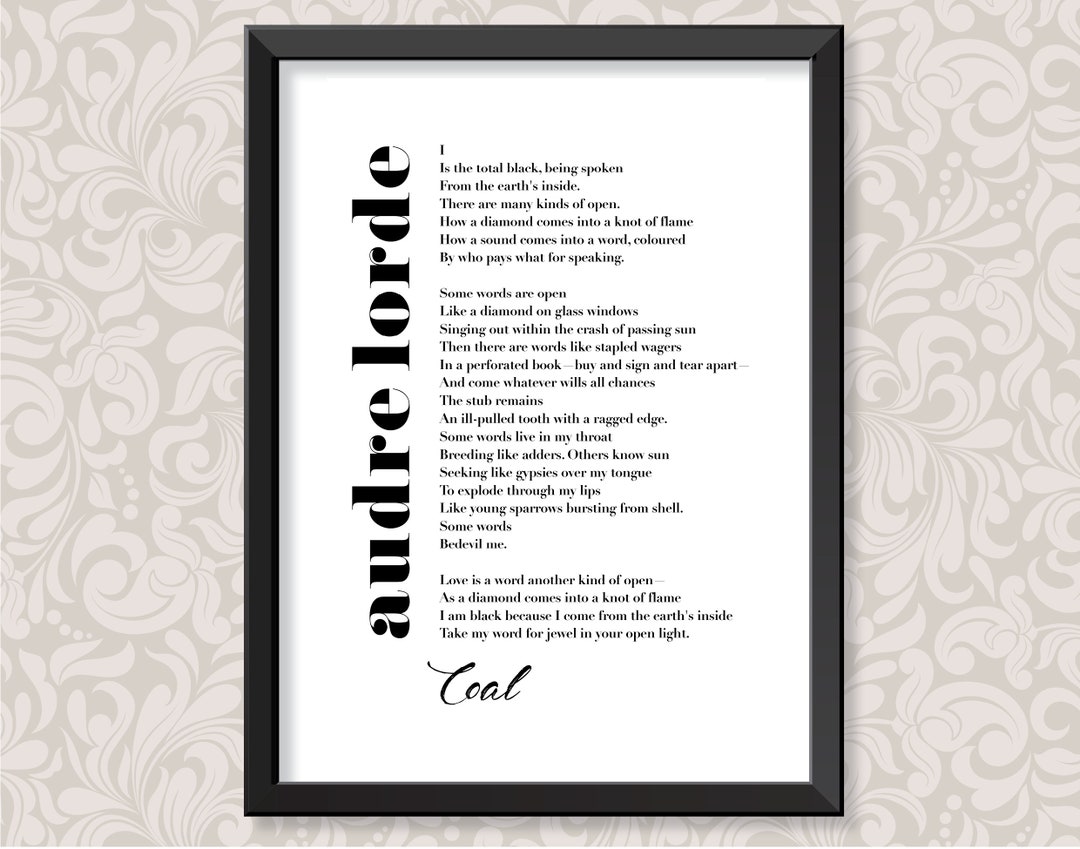 audre lorde
I
Is the total black, being spoken
From the earth's inside.
There are many kinds of open.
How a diamond comes into a knot of flame
How a sound comes into a word, coloured
By who pays what for speaking.
Some words are open
Like a diamond on glass windows
Singing out within the crash of passing sun
Then there are words like stapled wagers
In a perforated book—buy and sign and tear apart—
And come whatever wills all chances
The stub remains
An ill-pulled tooth with a ragged edge.
Some words live in my throat
Breeding like adders. Others know sun
Seeking like gypsies over my tongue
To explode through my lips
Like young sparrows bursting from shell.
Some words
Bedevil me.
Love is a word another kind of open—
As a diamond comes into a knot of flame
I am black because I come from the earth's inside
Take my word for jewel in your open light.
Coal